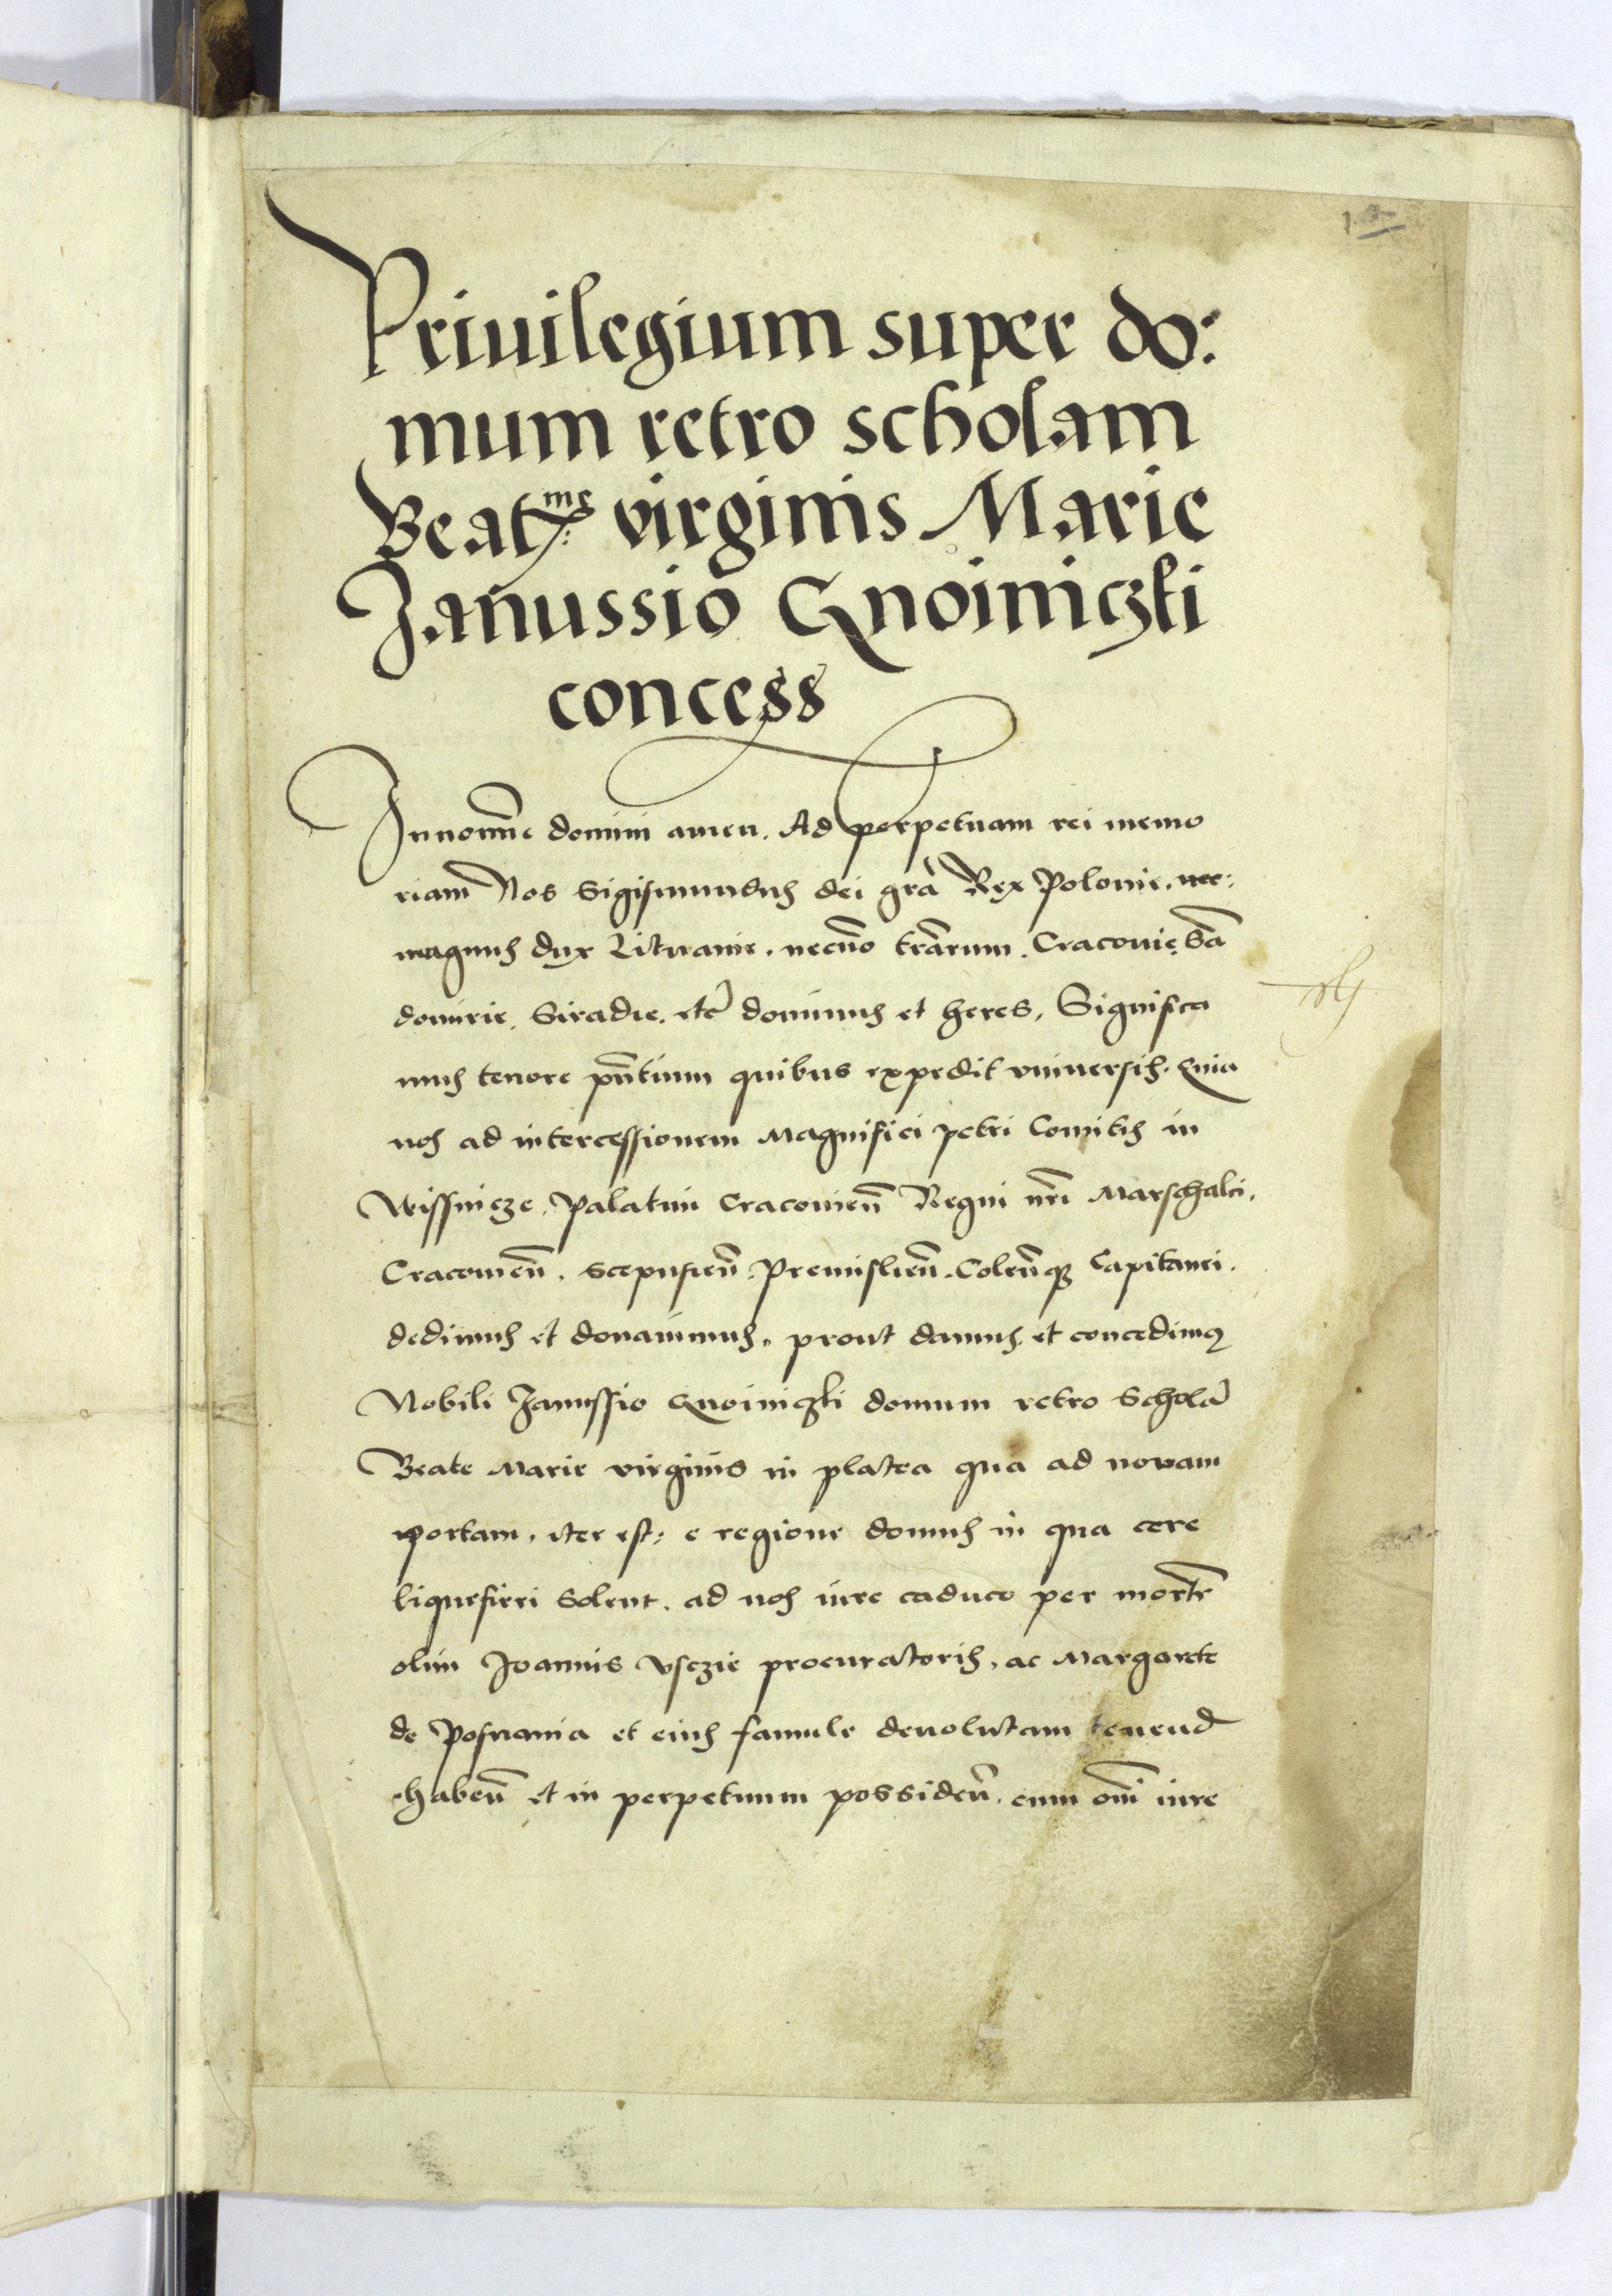 Priuilegium super do:
mum retro scholam
Beat:me virginis Marie
Janussio Gnoiniczki
concess
In no͞m͞ie domini amen. Ad perpetuam rei memo
riam Nos Sigismundus dei gr̄a Rex Polonie.
magnus dux Lituanie. necno͞ tr̄arum. Cracouie, Sa͞
domirie. Siradie. etc̄ dominus et heres, Significa
mus tenore pn̄tium quibus expedit vniuersis. Quia
nos ad intercessionem Magnifici petri Comitis in
Wissnicze. Palatini Cracouien̄ Regni nr̄i Marschalci.
Cracouien̄. Scepusien̄. Premislien̄. Colen̄q3 Capitanei.
dedimus et donauimus. prout damus et concedimꝰ
Nobili Janussio Gnoiniczki domum retro Schola͞
Beate Marie virginis in platea qua ad nouam
portam. iter est: e regione domus in qua cere
liquefieri solent. ad nos iure caduco per morte͞
olim Joannis Vsczie procuratoris. ac Margarete
de Posnania et eius famule deuolutam tenend
haben̄ et in perpetuum possiden̄. cum om̄i iure